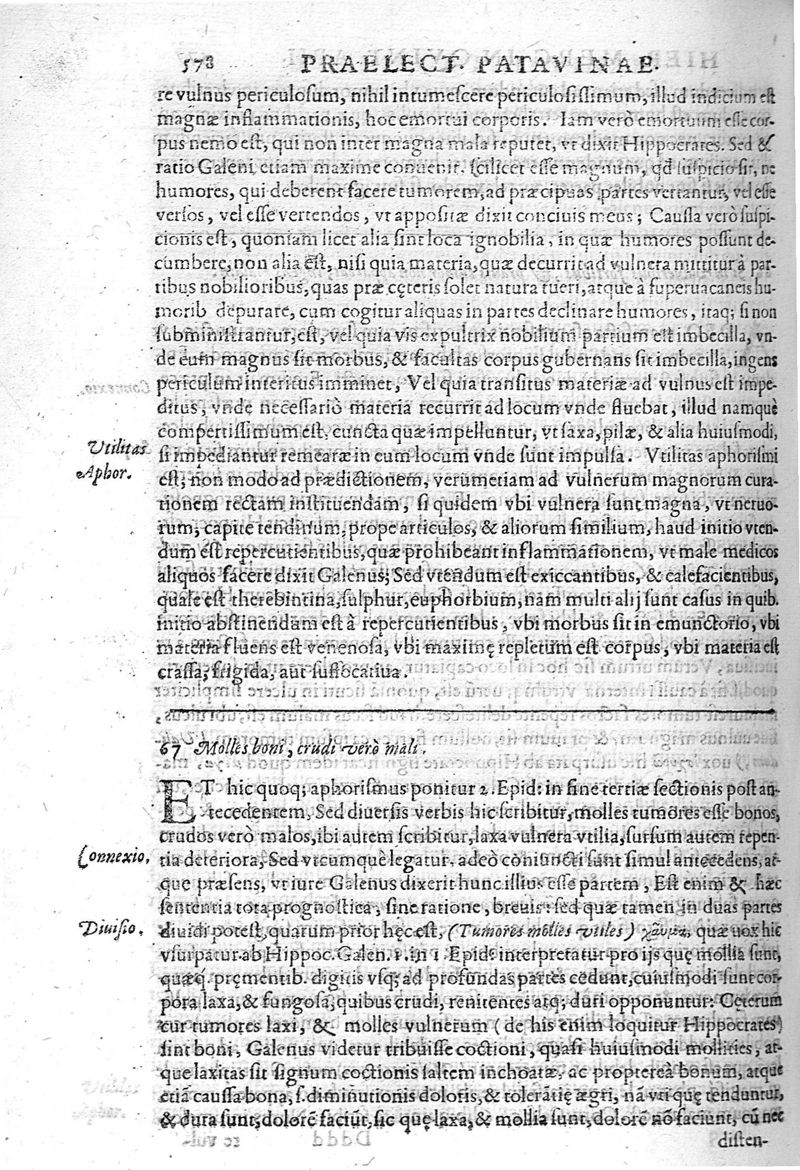 578 PRAELECT. PATAVINAE.
re vulnus periculosum, nihil intumescere periculosissimum, illud indicium est
magnæ inflammationis, hoc emortui corporis. Iam verò emortuum esse cor-
pus nemo est, qui non inter magna mala reputet, vt dixit Hippocrates. Sed &
ratio Galeni etiam maxime conuenit. scilicet esse magnum, qđ suspicio sit, ne
humores, qui deberent facere tumorem, ad præcipuas partes vertantur, vel esse
versos, vel esse vertendos, vt appositæ dixit conciuis meus; Caussa verò suspi-
cionis est, quoniam licet alia sint loca ignobilia, in quæ humores possunt de-
cumbere, non alia est, nisi quia materia, quæ decurrit ad vulnera mittitur à par-
tibus nobilioribus, quas præ cęteris solet natura tueri, atque à superuacaneis hu-
morib depurare, cum cogitur aliquas in partes declinare humores, itaq; si non
subministrantur, est, vel quia vis expultrix nobilium partium est imbecilla, vn-
de cum magnus sit morbus, & facultas corpus gubernans sit imbecilla, ingens
periculum interitus imminet, Vel quia transitus materiæ ad vulnus est impe-
ditus, vnde necessariò materia recurrit ad locum vnde fluebat, illud namquè
compertissimum est, cuncta quæ impelluntur, vt saxa, pilæ, & alia huiusmodi,
si impediantur remeare in eum locum vnde sunt impulsa. Vtilitas aphorismi
Vtilitas
Aphor.
est, non modo ad prædictionem, verumetiam ad vulnerum magnorum cura-
tionem rectam instituendam, si quidem vbi vulnera sunt magna, vt neruo-
rum, capite tendinum, prope articulos, & aliorum similium, haud initio vten-
dum est repercutientibus, quæ prohibeant inflammationem, vt male medicos
aliquos facere dixit Galenus; Sed vtendum est exiccantibus, & calefacientibus,
quale est therebintina, sulphur, euphorbium, nam multi alij sunt casus in quib.
initio abstinendam est à repercutientibus, vbi morbus sit in emunctorio, vbi
materia fluens est venenosa, vbi maximę repletum est corpus, vbi materia est
crassa, frigida, aut suffocatiua.
67 Molles boni, crudi verò mali.
ET hic quoq; aphorismus ponitur 2. Epid: in fine tertiæ sectionis post an-
tecedentem, Sed diuersis verbis hic scribitur, molles tumores esse bonos,
crudos verò malos, ibi autem scribitur, laxa vulnera vtilia, sursum autem repen-
Connexio.
tia deteriora, Sed vtcumquè legatur. adeò coniuncti sunt simul antecedens, at-
que præsens, vt iure Galenus dixerit hunc illius esse partem, Est enim & hæc
sententia tota prognostica, sine ratione, breuis: sed quæ tamen in duas partes
Diuisio.
diuidi potest, quarum prior hęc est, (Tumores molles vtiles) χαῦμα, quæ uox hic
vsurpatur ab Hippoc. Galen. 1. in 1. Epid: interpretatur pro ijs quę mollia sunt,
quæq. pręmentib. digitis vsq; ad profundas partes cedunt, cuiusmodi sunt cor-
pora laxa, & fungosa, quibus crudi, renitentes atq; duri opponuntur: Cęterum
cur tumores laxi, & molles vulnerum (de his enim loquitur Hippocrates)
sint boni, Galenus videtur tribuisse coctioni, quasi huiusmodi mollities, at-
que laxitas sit signum coctionis saltem inchoatæ, ac proptereà bonum, atque
etiā caussa bona, s. diminutionis doloris, & toleratię ægri, nā vti quę tenduntur,
& dura sunt, dolorē faciūt, sic quę laxa, & mollia sunt, dolorē nō faciunt, cū nec
disten-